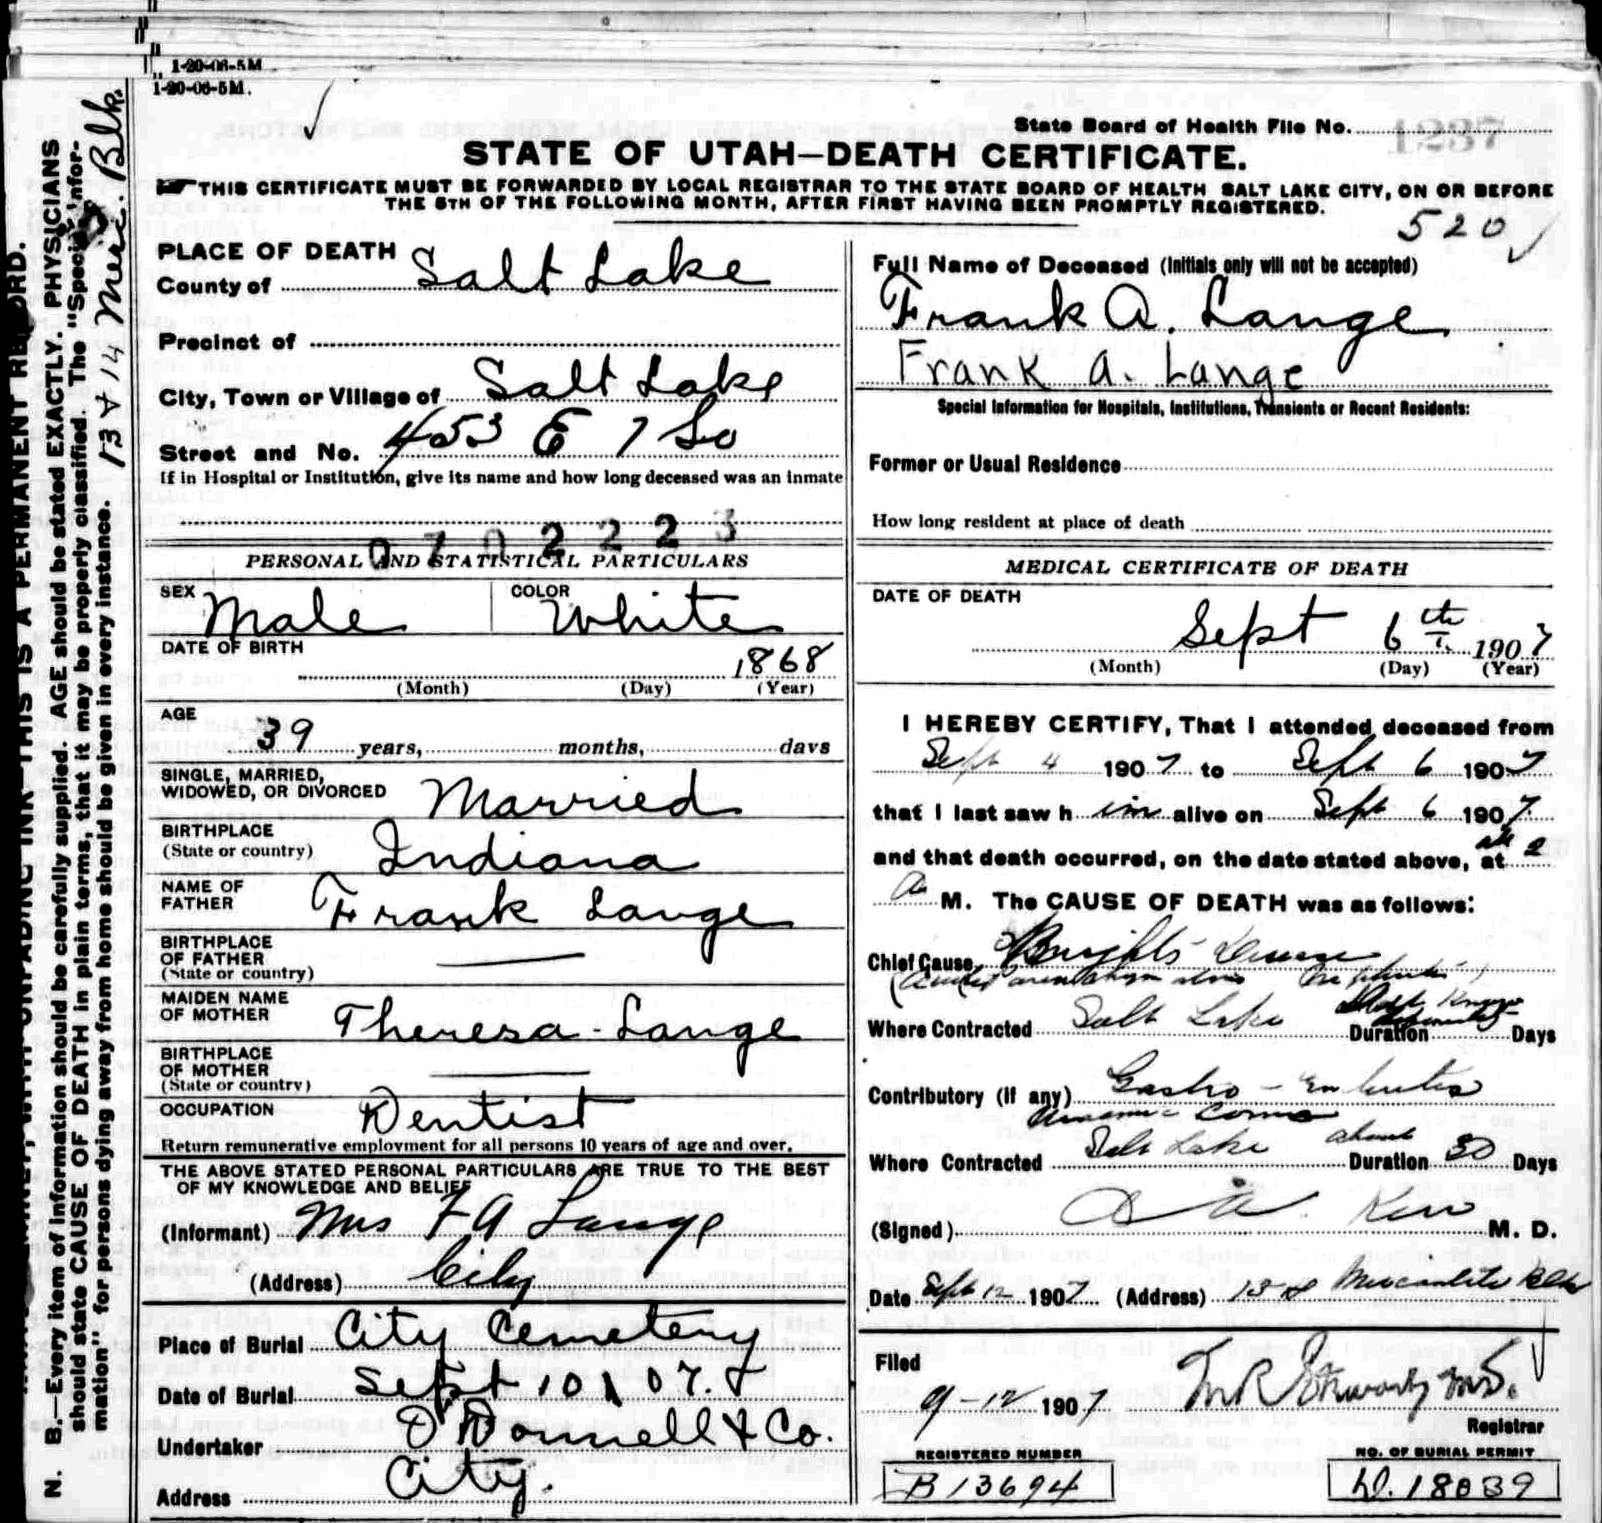 1-20-06-5M
1-20-06-5M.
State Board of Health File No. 1237
STATE OF UTAH—DEATH CERTIFICATE.
☞ THIS CERTIFICATE MUST BE FORWARDED BY LOCAL REGISTRAR TO THE STATE BOARD OF HEALTH SALT LAKE CITY, ON OR BEFORE
THE 5TH OF THE FOLLOWING MONTH, AFTER FIRST HAVING BEEN PROMPTLY REGISTERED.
520 ✓
N. B.—Every item of information should be carefully supplied. AGE should be stated EXACTLY. PHYSICIANS
should state CAUSE OF DEATH in plain terms, that it may be properly classified. The "Special Infor-
mation" for persons dying away from home should be given in every instance.
13 & 14 Merc. Blk.
THIS IS A PERMANENT RECORD.
PLACE OF DEATH
County of Salt Lake
Precinct of
City, Town or Village of Salt Lake
Street and No. 453 E 7 So
If in Hospital or Institution, give its name and how long deceased was an inmate
070222 3
PERSONAL AND STATISTICAL PARTICULARS
SEX Male COLOR White
DATE OF BIRTH 1868
(Month) (Day) (Year)
AGE 39 years, months, days
SINGLE, MARRIED,
WIDOWED, OR DIVORCED Married
BIRTHPLACE
(State or country) Indiana
NAME OF
FATHER Frank Lange
BIRTHPLACE
OF FATHER
(State or country)
MAIDEN NAME
OF MOTHER Theresa - Lange
BIRTHPLACE
OF MOTHER
(State or country)
OCCUPATION Dentist
Return remunerative employment for all persons 10 years of age and over.
THE ABOVE STATED PERSONAL PARTICULARS ARE TRUE TO THE BEST
OF MY KNOWLEDGE AND BELIEF
(Informant) Mrs F A Lange
(Address) City
Place of Burial City Cemetery
Date of Burial Sept 10 1907
Undertaker O'Donnell & Co.
Address City.
Full Name of Deceased (Initials only will not be accepted)
Frank A. Lange
Frank A. Lange
Special Information for Hospitals, Institutions, Transients or Recent Residents:
Former or Usual Residence
How long resident at place of death
MEDICAL CERTIFICATE OF DEATH
DATE OF DEATH
Sept 6th 1907
(Month) (Day) (Year)
I HEREBY CERTIFY, That I attended deceased from
Sept 4 1907 to Sept 6 1907
that I last saw him alive on Sept 6 1907.
and that death occurred, on the date stated above, at 2
A M. The CAUSE OF DEATH was as follows:
Chief Cause Brights Disease
Where Contracted Salt Lake Duration Days
Contributory (if any) Gastro - Enteritis
Uraemic Coma
Where Contracted Salt Lake Duration about 30 Days
(Signed) M. D.
Date Sept 12 1907 (Address) 13 & Mercantile Blk
Filed
9-12 1907 M.D.
Registrar
REGISTERED NUMBER
B 13694
NO. OF BURIAL PERMIT
D. 18039